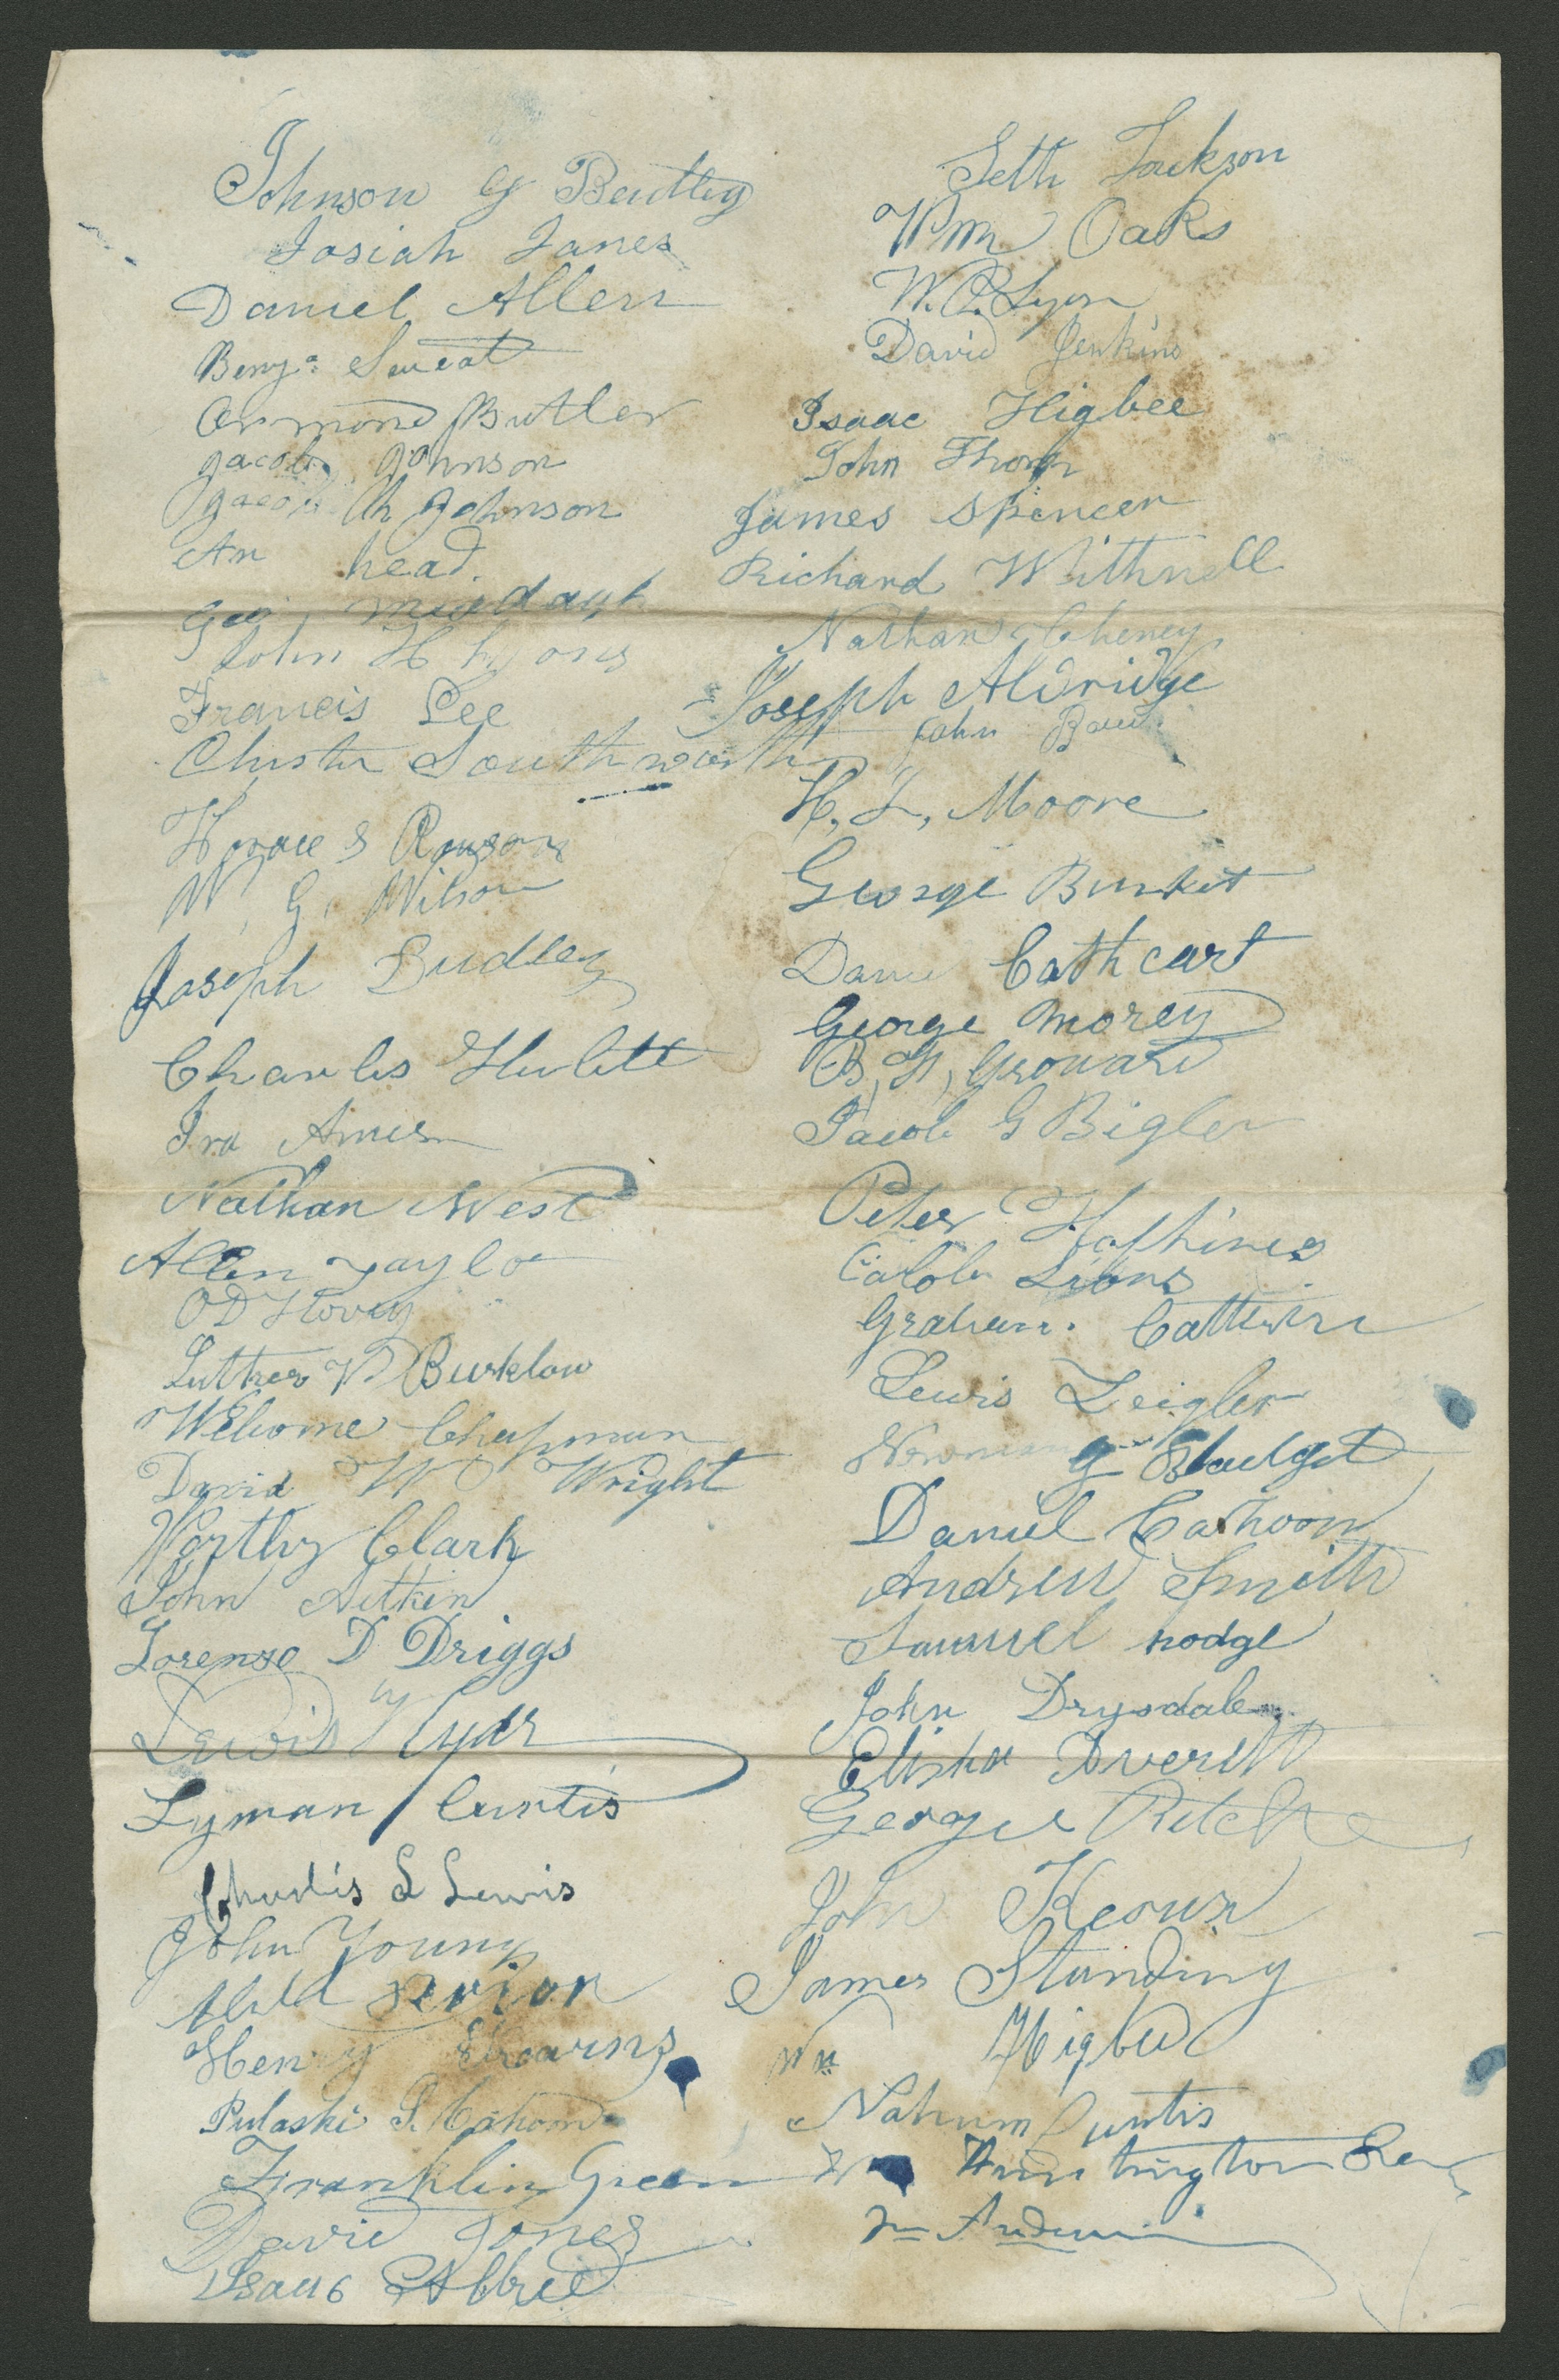 Johnson G Bentley
Josiah Janes
Daniel Allen
Benja. Sweat
Ormond Butler
Jacob Johnson
Jacob h Johnson
An head.
Geo
John H
Francis Lee
Chester Southworth
Horace S Rawson
W. G. Wilson
Joseph Dudley
Charles Hulett
Ira Ames
Nathan West
Allen Taylor
O D Hovey
Luther W Burklow
Welcome Chapman
David W Wright
Worthy Clark
John Aitkin
Lorenzo D Driggs
Lewis
Lyman Curtis
Charles S Lewis
John Young
Henry
Pulaski S. Cahoon
Franklin Green
David Jones
Isaac
Seth Jackson
Wm Oaks
W. P. Lyon
David Jenkins
Isaac Higbee
John Thorp
James Spencer
Richard Withnell
Nathan Cheney
Joseph Aldridge
John
H. I. Moore
George Burket
Daniel Cathcart
George Morey
B, F, Grouard
Jacob G Bigler
Peter
Calob Lions
Graham.
Lewis Zeigler
Newman G Blodget
Daniel Cahoon
Andrew Smith
Samuel hodge
John Drysdale
Elisha Averett
George Ritche
John Keown
James Standing
Wm Higbee
Nahum Curtis
Wm Huntington Sen
Wm Anderson